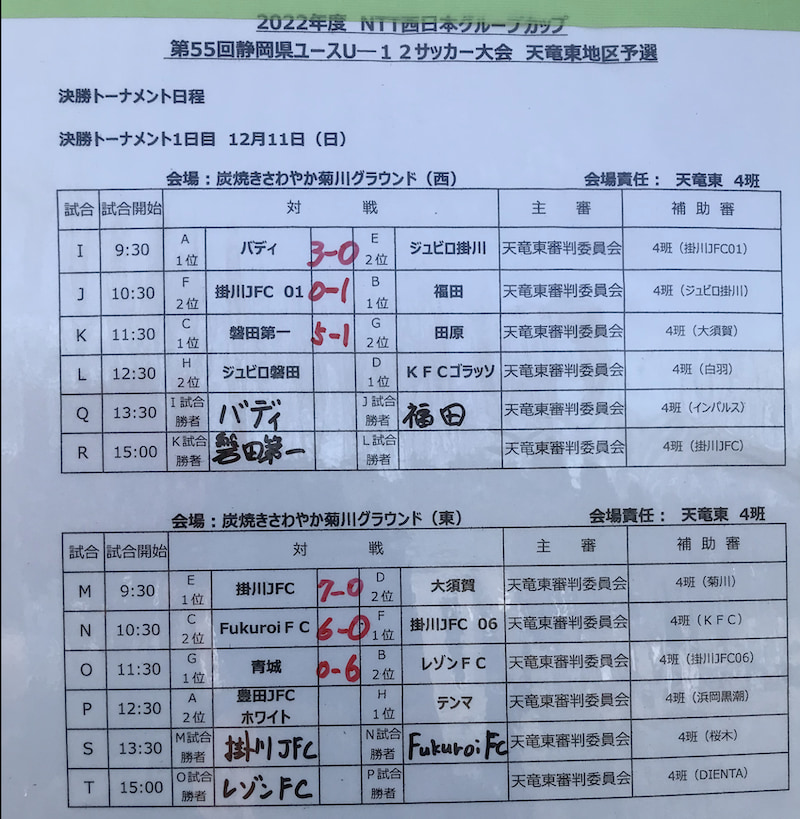 2022年度 NTT西日本グループカップ
第55回静岡県ユースU―12サッカー大会 天竜東地区予選
決勝トーナメント日程
決勝トーナメント1日目 12月11日（日）
会場：炭焼きさわやか菊川グラウンド（西） 会場責任： 天竜東 4班
試合 試合開始 対 戦 主 審 補 助 審
I 9:30 A 1位 バディ 3-0 E 2位 ジュビロ掛川 天竜東審判委員会 4班（掛川JFC01）
J 10:30 F 2位 掛川JFC 01 0-1 B 1位 福田 天竜東審判委員会 4班（ジュビロ掛川）
K 11:30 C 1位 磐田第一 5-1 G 2位 田原 天竜東審判委員会 4班（大須賀）
L 12:30 H 2位 ジュビロ磐田 D 1位 KFCゴラッソ 天竜東審判委員会 4班（白羽）
Q 13:30 I試合 勝者 バディ J試合 勝者 福田 天竜東審判委員会 4班（インパルス）
R 15:00 K試合 勝者 磐田第一 L試合 勝者 天竜東審判委員会 4班（掛川JFC）
会場：炭焼きさわやか菊川グラウンド（東） 会場責任： 天竜東 4班
試合 試合開始 対 戦 主 審 補 助 審
M 9:30 E 1位 掛川JFC 7-0 D 2位 大須賀 天竜東審判委員会 4班（菊川）
N 10:30 C 2位 FukuroiFC 6-0 F 1位 掛川JFC 06 天竜東審判委員会 4班（KFC）
O 11:30 G 1位 青城 0-6 B 2位 レゾンFC 天竜東審判委員会 4班（掛川JFC06）
P 12:30 A 2位 豊田JFC ホワイト H 1位 テンマ 天竜東審判委員会 4班（浜岡黒潮）
S 13:30 M試合 勝者 掛川JFC N試合 勝者 FukuroiFC 天竜東審判委員会 4班（桜木）
T 15:00 O試合 勝者 レゾンFC P試合 勝者 天竜東審判委員会 4班（DIENTA）